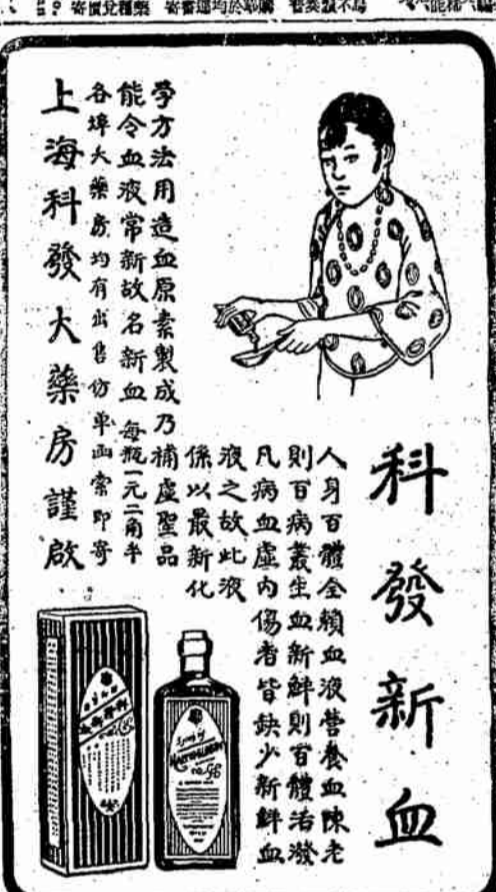 科發新血
人身百體全賴血液營養血陳老
則百病叢生血新鮮則百體活潑
凡病血虛內傷者皆缺少新鮮血
液之故此液
係以最新化
學方法用造血原素製成乃補虛聖品
能令血液常新故名新血 每瓶一元二角半
各埠大藥房均有出售仿單函索即寄
上海科發大藥房謹啟
Syrup of
HAEMOGLOBIN